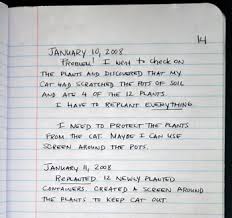 14
JANUARY 10, 2008
PROBLEM! I WENT TO CHECK ON
THE PLANTS AND DISCOVERED THAT MY
CAT HAD SCRATCHED THE POTS OF SOIL
AND ATE 4 OF THE 12 PLANTS.
I HAVE TO REPLANT EVERYTHING
I NEED TO PROTECT THE PLANTS
FROM THE CAT. MAYBE I CAN USE
SCREEN AROUND THE POTS.
JANUARY 11, 2008
REPLANTED 12 NEWLY PLANTED
CONTAINERS. CREATED A SCREEN AROUND
THE PLANTS TO KEEP CAT OUT.